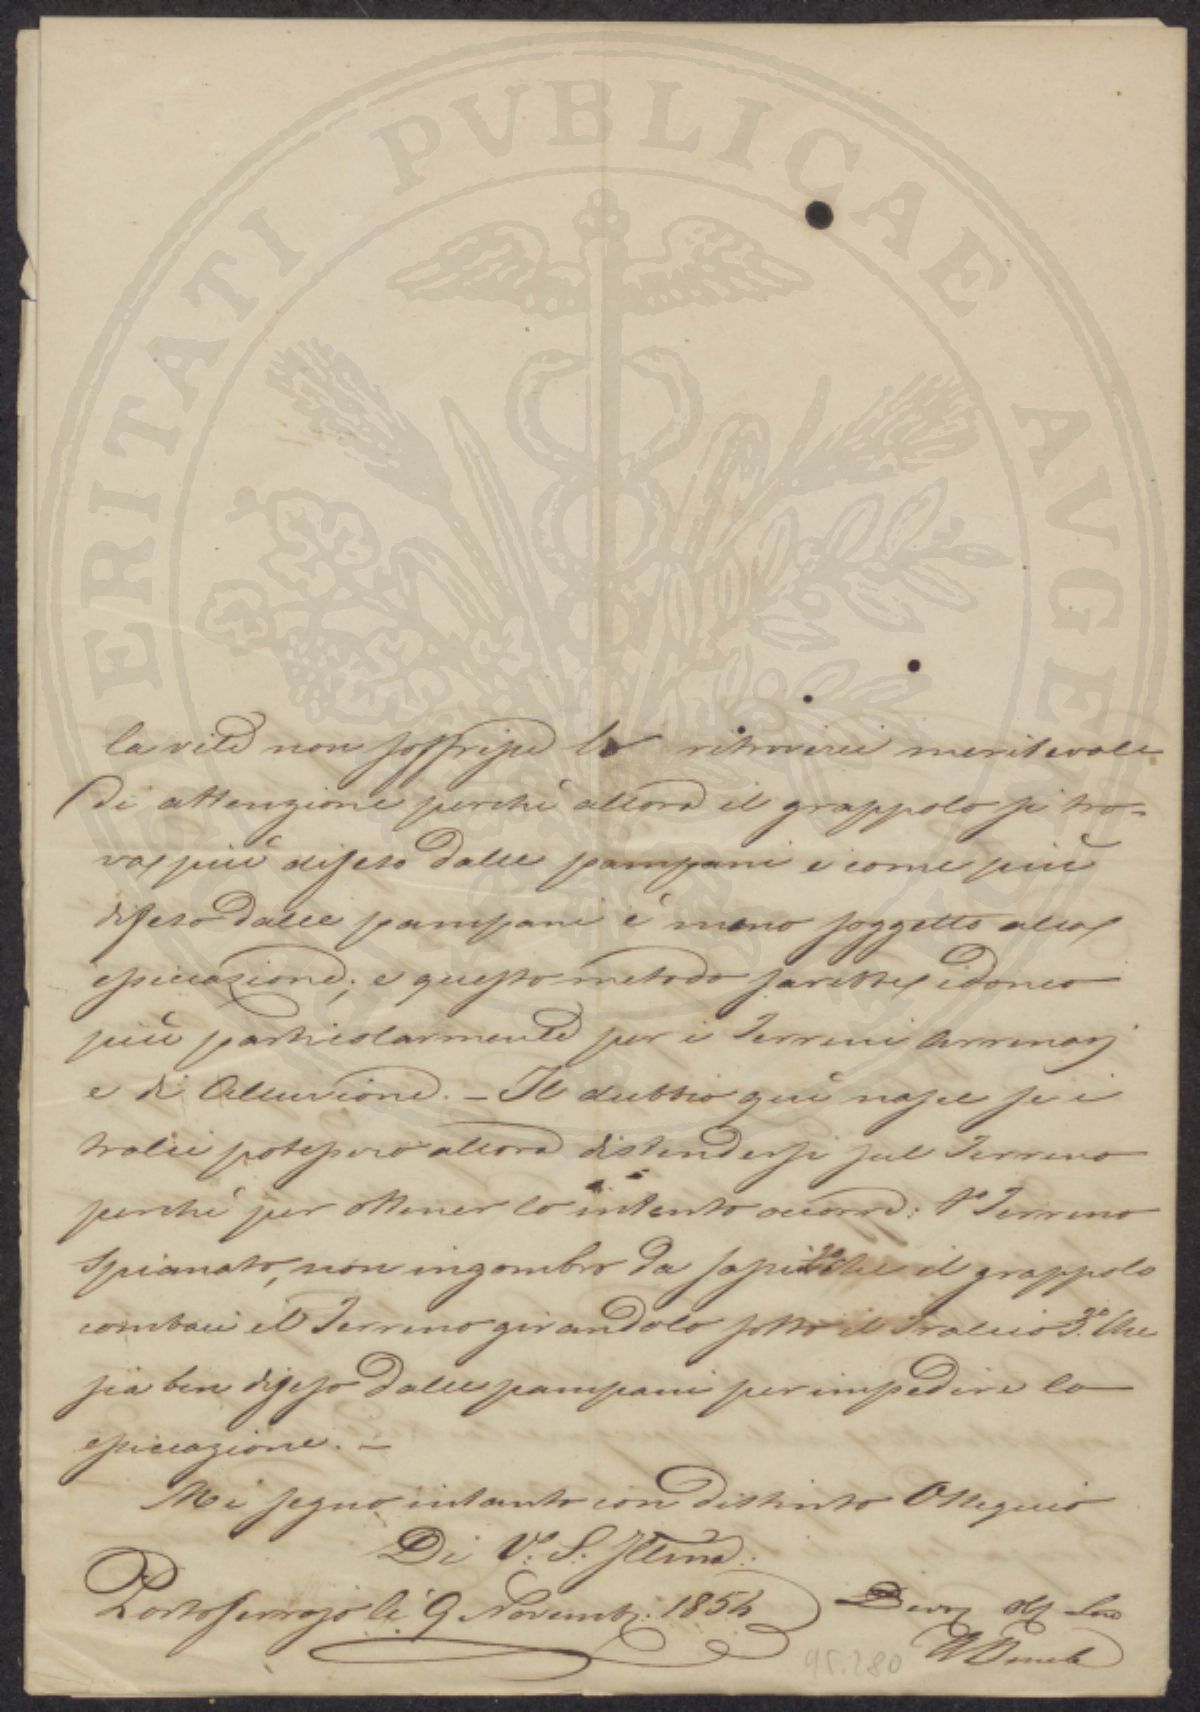 PROSPERITATI PVBLICAE AVGENDAE
la vite non soffrisse lo ritroverei meritevole
di attenzione perchè allora il grappolo si tro=
va più difeso dalle pampani e come più
difeso dalle pampani è meno soggetto alla
essiccazione; e questo metodo sarebbe idoneo
più particolarmente per i Terreni Arrenarj
e di Alluvione. – Il dubbio qui nasce se i
tralci potessero allora distendersi sul Terreno
perchè per ottener lo intento occorre: 1° Terreno
Spianato, non ingombro da sassi 2° che il grappolo
combaci il Terreno girandolo sotto il Tralcio 3° Che
sia ben difeso dalle pampani per impedire la
essiccazione. –
Mi segno intanto con distinto Ossequio
Di V. S. Illma
Portoferrajo li 9 Novemb. 1854
Devo
95.280